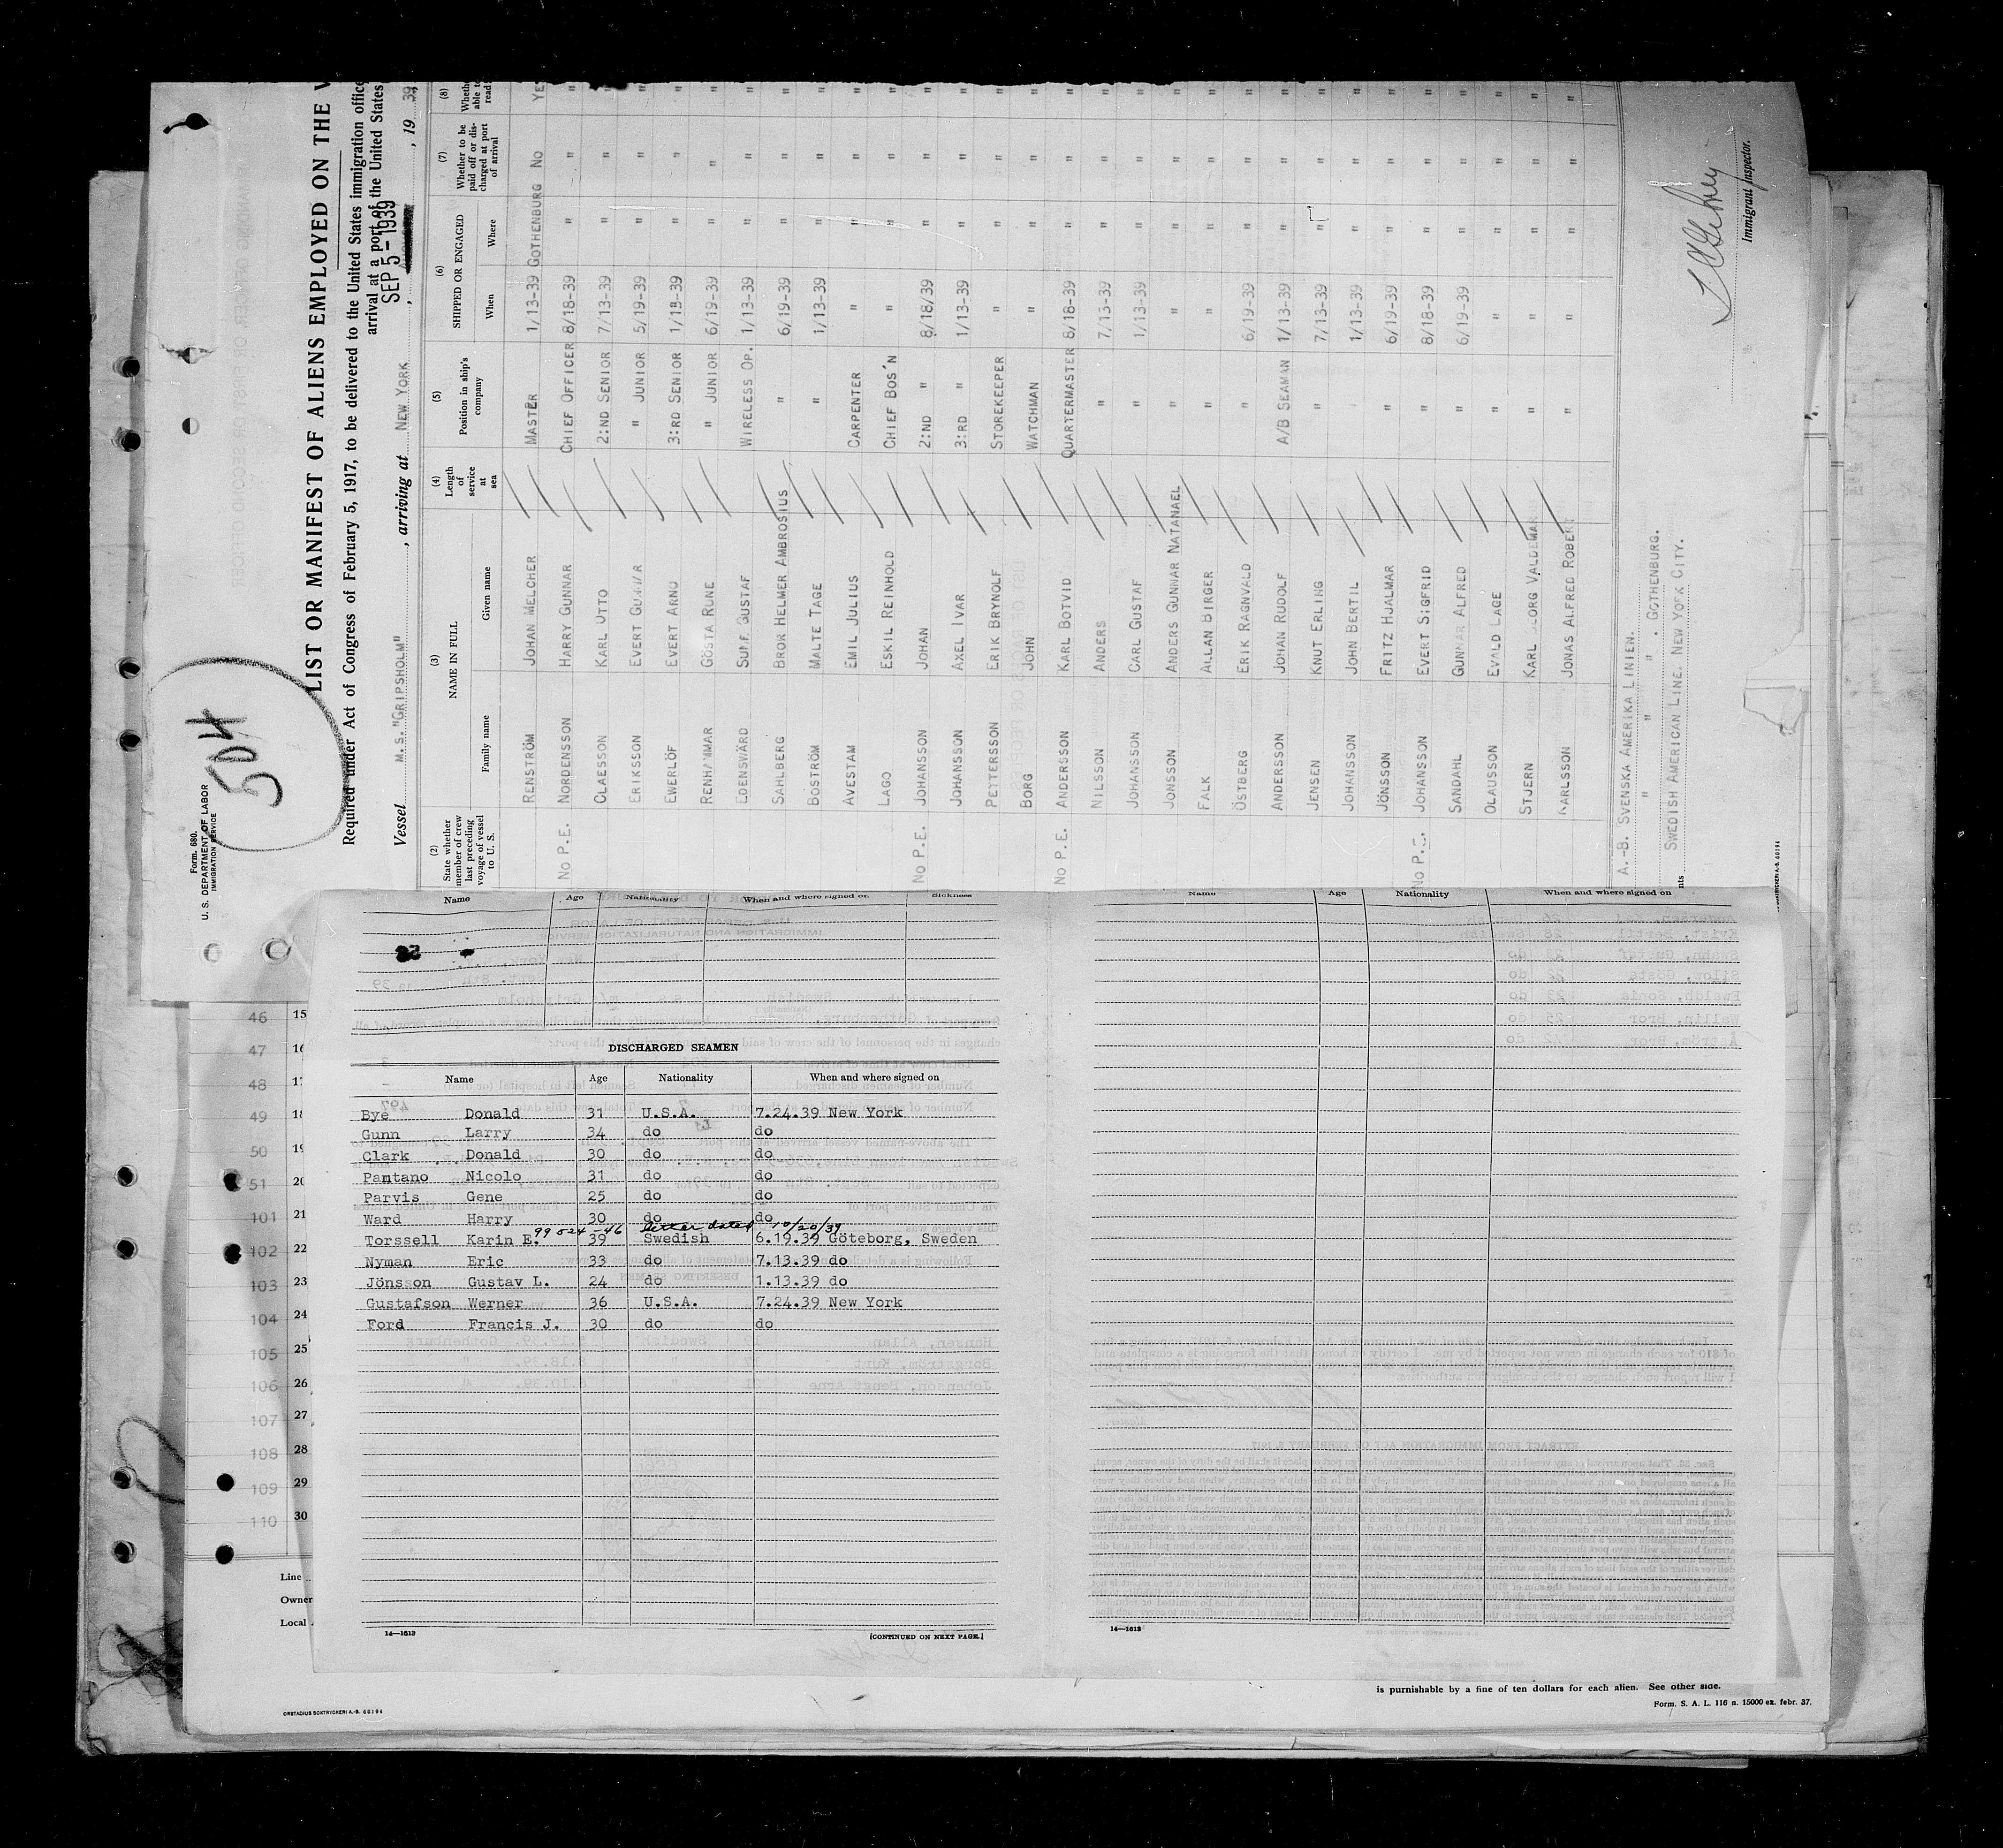 Form 680.
U. S. DEPARTMENT OF LABOR
IMMIGRATION SERVICE
504
LIST OR MANIFEST OF ALIENS EMPLOYED ON THE V
Required under Act of Congress of February 5, 1917, to be delivered to the United States immigration office
arrival at a port of the United States
SEP 5 - 1939
Vessel M.S. "GRIPSHOLM", arriving at NEW YORK, , 19 39
(2) State whether member of crew last preceding voyage of vessel to U. S.
(3) NAME IN FULL
Family name Given name
(4) Length of service at sea
(5) Position in ship's company
(6) SHIPPED OR ENGAGED
When Where
(7) Whether to be paid off or discharged at port of arrival
(8) Wheth able t read
RENSTRÖM JOHAN MELCHER MASTER 1/13-39 GOTHENBURG NO YE
NO P.E. NORDENSSON HARRY GUNNAR CHIEF OFFICER 8/18-39 " " "
CLAESSON KARL OTTO 2:ND SENIOR 7/13-39 " " "
ERIKSSON EVERT GUNNAR " JUNIOR 5/19-39 " " "
EWERLÖF EVERT ARNO 3:RD SENIOR 1/13-39 " " "
RENHAMMAR GÖSTA RUNE " JUNIOR 6/19-39 " " "
EDENSWÄRD SUNE GUSTAF WIRELESS OP. 1/13-39 " " "
SAHLBERG BROR HELMER AMBROSIUS " 6/19-39 " " "
BOSTRÖM MALTE TAGE " 1/13-39 " " "
AVESTAM EMIL JULIUS CARPENTER " " " "
LAGO ESKIL REINHOLD CHIEF BOS'N " " " "
NO P.E. JOHANSSON JOHAN 2:ND " 8/18/39 " " "
JOHANSSON AXEL IVAR 3:RD " 1/13-39 " " "
PETTERSSON ERIK BRYNOLF STOREKEEPER " " " "
BORG JOHN WATCHMAN " " " "
NO P.E. ANDERSSON KARL BOTVID QUARTERMASTER 8/18-39 " " "
NILSSON ANDERS " 7/13-39 " " "
JOHANSSON CARL GUSTAF " 1/13-39 " " "
JONSSON ANDERS GUNNAR NATANAEL " " " " "
FALK ALLAN BIRGER " " " " "
ÖSTBERG ERIK RAGNVALD " 6/19-39 " " "
ANDERSSON JOHAN RUDOLF A/B SEAMAN 1/13-39 " " "
JENSEN KNUT ERLING " 7/13-39 " " "
JOHANSSON JOHN BERTIL 1/13-39 " " "
JÖNSSON FRITZ HJALMAR " 6/19-39 " " "
NO P.E. JOHANSSON EVERT SIGFRID " 8/18-39 " " "
SANDAHL GUNNAR ALFRED " 6/19-39 " " "
OLAUSSON EVALD LAGE " " " " "
STJERN KARL GEORG VALDEMAR " " " " "
KARLSSON JONAS ALFRED ROBERT " " " " "
A.-B. SVENSKA AMERIKA LINIEN.
" " " . GOTHENBURG.
SWEDISH AMERICAN LINE. NEW YORK CITY.
nts
Immigrant Inspector.
Name Age Nationality When and where signed on. Sickness
Name Age Nationality When and where signed on
DISCHARGED SEAMEN
Name Age Nationality When and where signed on
Bye Donald 31 U.S.A. 7.24.39 New York
Gunn Larry 34 do do
Clark Donald 30 do do
Pantano Nicolo 31 do do
Parvis Gene 25 do do
Ward Harry 30 do do
99524-46 letter dated 10/20/39
Torssell Karin E. 39 Swedish 6.19.39 Göteborg, Sweden
Nyman Eric 33 do 7.13.39 do
Jönsson Gustav L. 24 do 1.13.39 do
Gustafson Werner 36 U.S.A. 7.24.39 New York
Ford Francis J. 30 do do
14—1613 [CONTINUED ON NEXT PAGE.]
14—1613
46 15
47 16
48 17
49 18
50 19
51 20
101 21
102 22
103 23
104 24
105 25
106 26
107 27
108 28
109 29
110 30
Line
Owner
Local
is purnishable by a fine of ten dollars for each alien. See other side.
Form. S. A. L. 116 n. 15000 ex. febr. 37.
ORSTADIUS BOKTRYCKERI A.-B. 60194